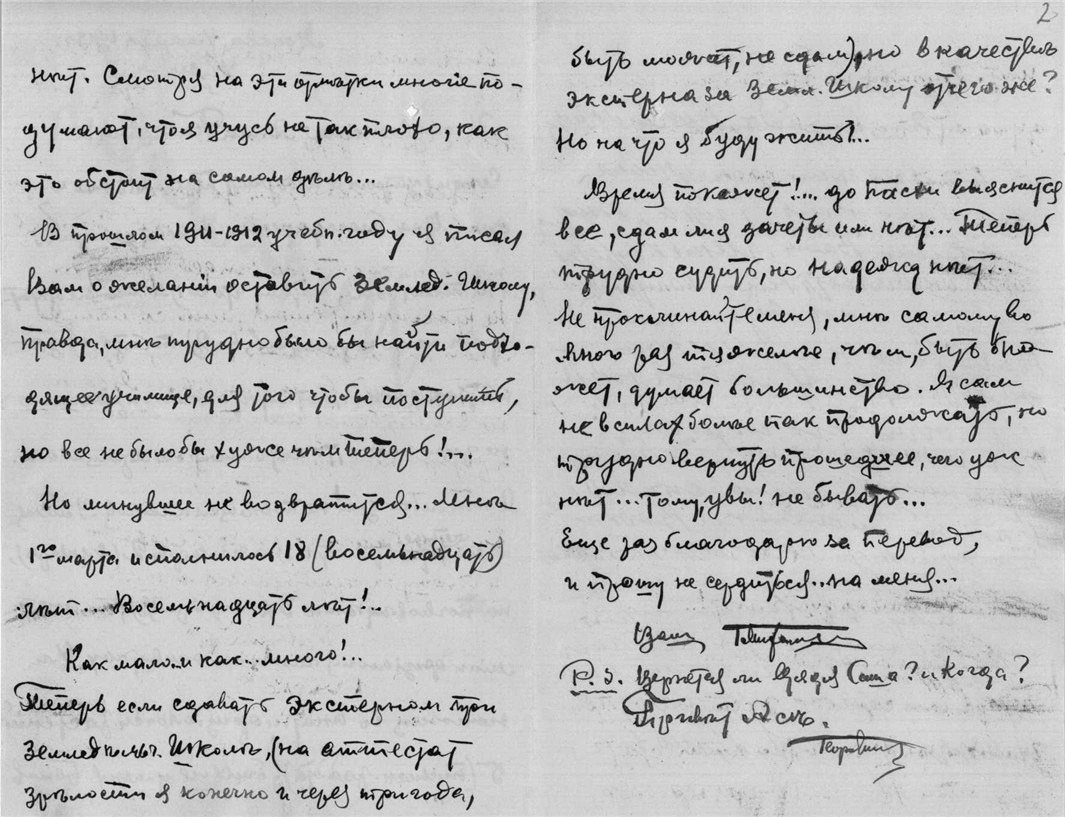 2
нѣт. Смотря на эти отмѣтки многіе по-
думают, что я учусь не так плохо, как
это обстоит на самом дѣлѣ...
В прошлом 1911-1912 учебн. году я писал
Вам о желаніи оставить Землед. Школу,
правда, мнѣ трудно было бы найти подхо-
дящее училище, для того чтобы поступить,
но все не было бы хуже чѣм теперь!...
Но минувшее не возвратится... Мнѣ
1го марта исполнилось 18 (восемьнадцать)
лѣт... Восемьнадцать лѣт!..
Как мало и как... много!...
Теперь если сдавать экстерном при
Земледѣльч. Школѣ, (на аттестат
зрѣлости я конечно и через три года,
быть может, не сдам), но в качествѣ
экстерна за Земл. Школу отчего же?
Но на что я буду жить?...
Время покажет!... до Пасхи выяснится
все, сдам ли я зачеты или нѣт... Теперь
трудно судить, но надежд нѣт...
Не проклинайте меня, мнѣ самому во
много раз тяжелѣе, чѣм, быть мо-
жет, думает большинство. Я сам
не в силах болѣе так продолжать, но
трудно вернуть прошедшее, чего уж
нѣт... тому, увы! не бывать...
Еще раз благодарю за перевод,
и прошу не сердиться.. на меня...
Ваш
P.S. Вернется ли Дядя Саша? и Когда?
Привѣт Асѣ.